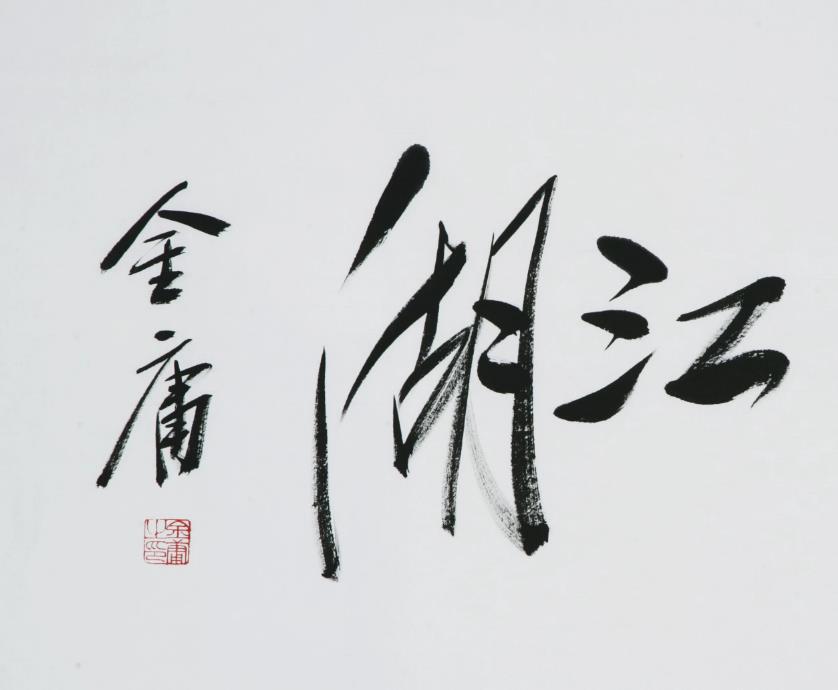 江湖
金庸
金庸之印